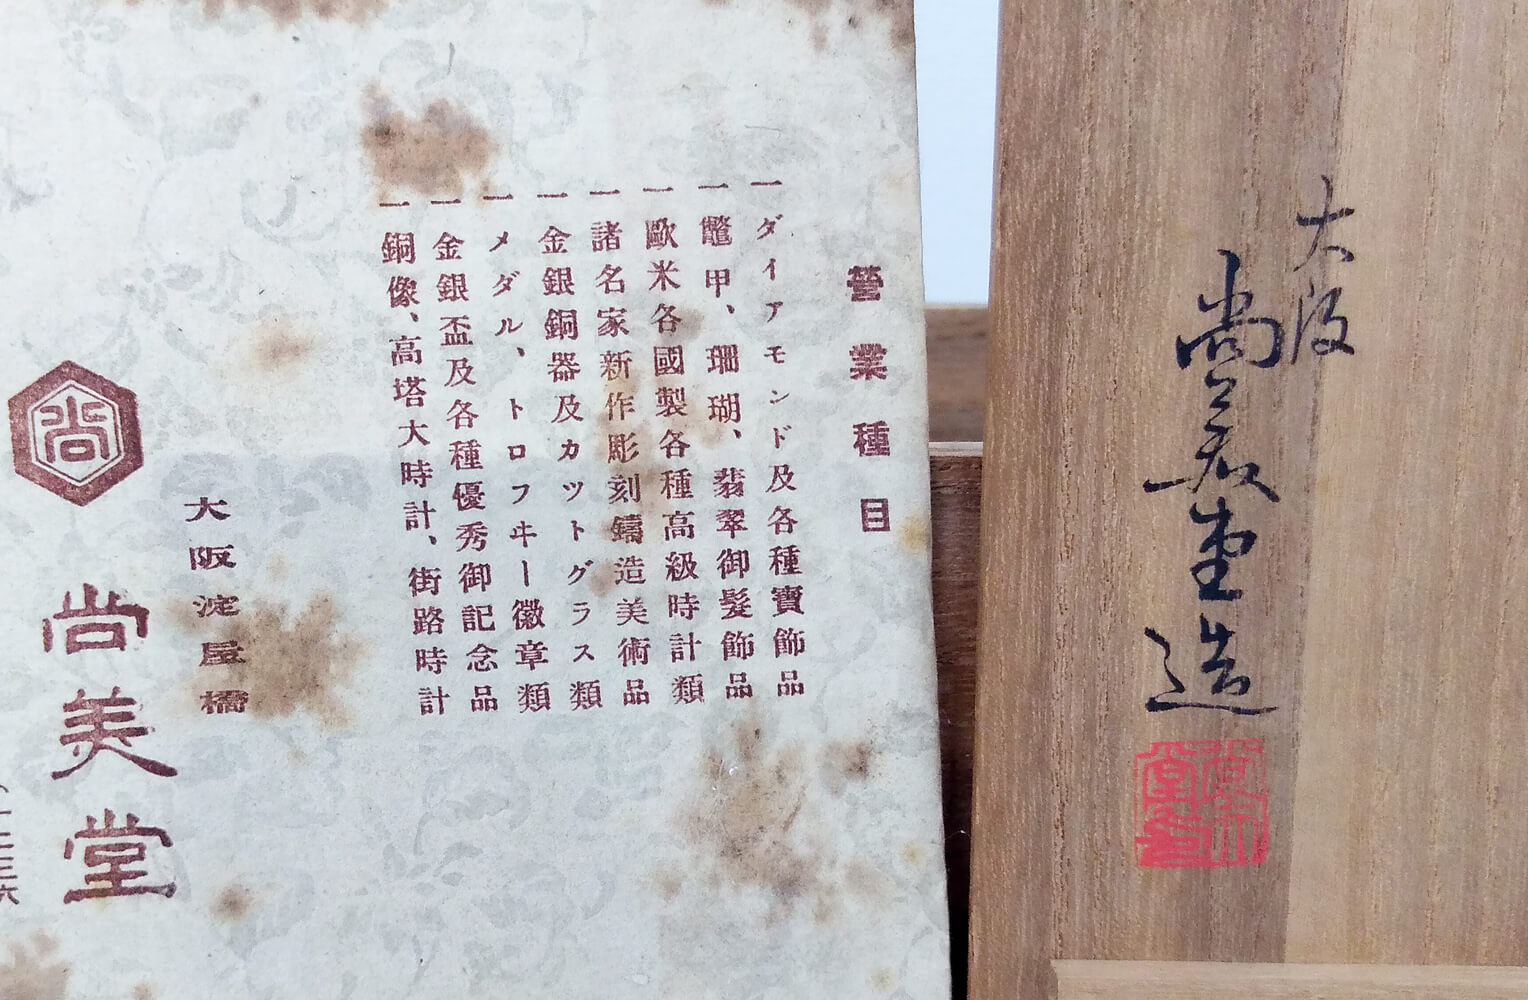 大阪
尚美堂造
營業種目
一ダイアモンド及各種寶飾品
一鼈甲、珊瑚、翡翠御髮飾品
一歐米各國製各種高級時計類
一諸名家新作彫刻鑄造美術品
一金銀銅器及カットグラス類
一メダル、トロフヰー徽章類
一金銀盃及各種優秀御記念品
一銅像、高塔大時計、街路時計
大阪淀屋橋
尚
尚美堂